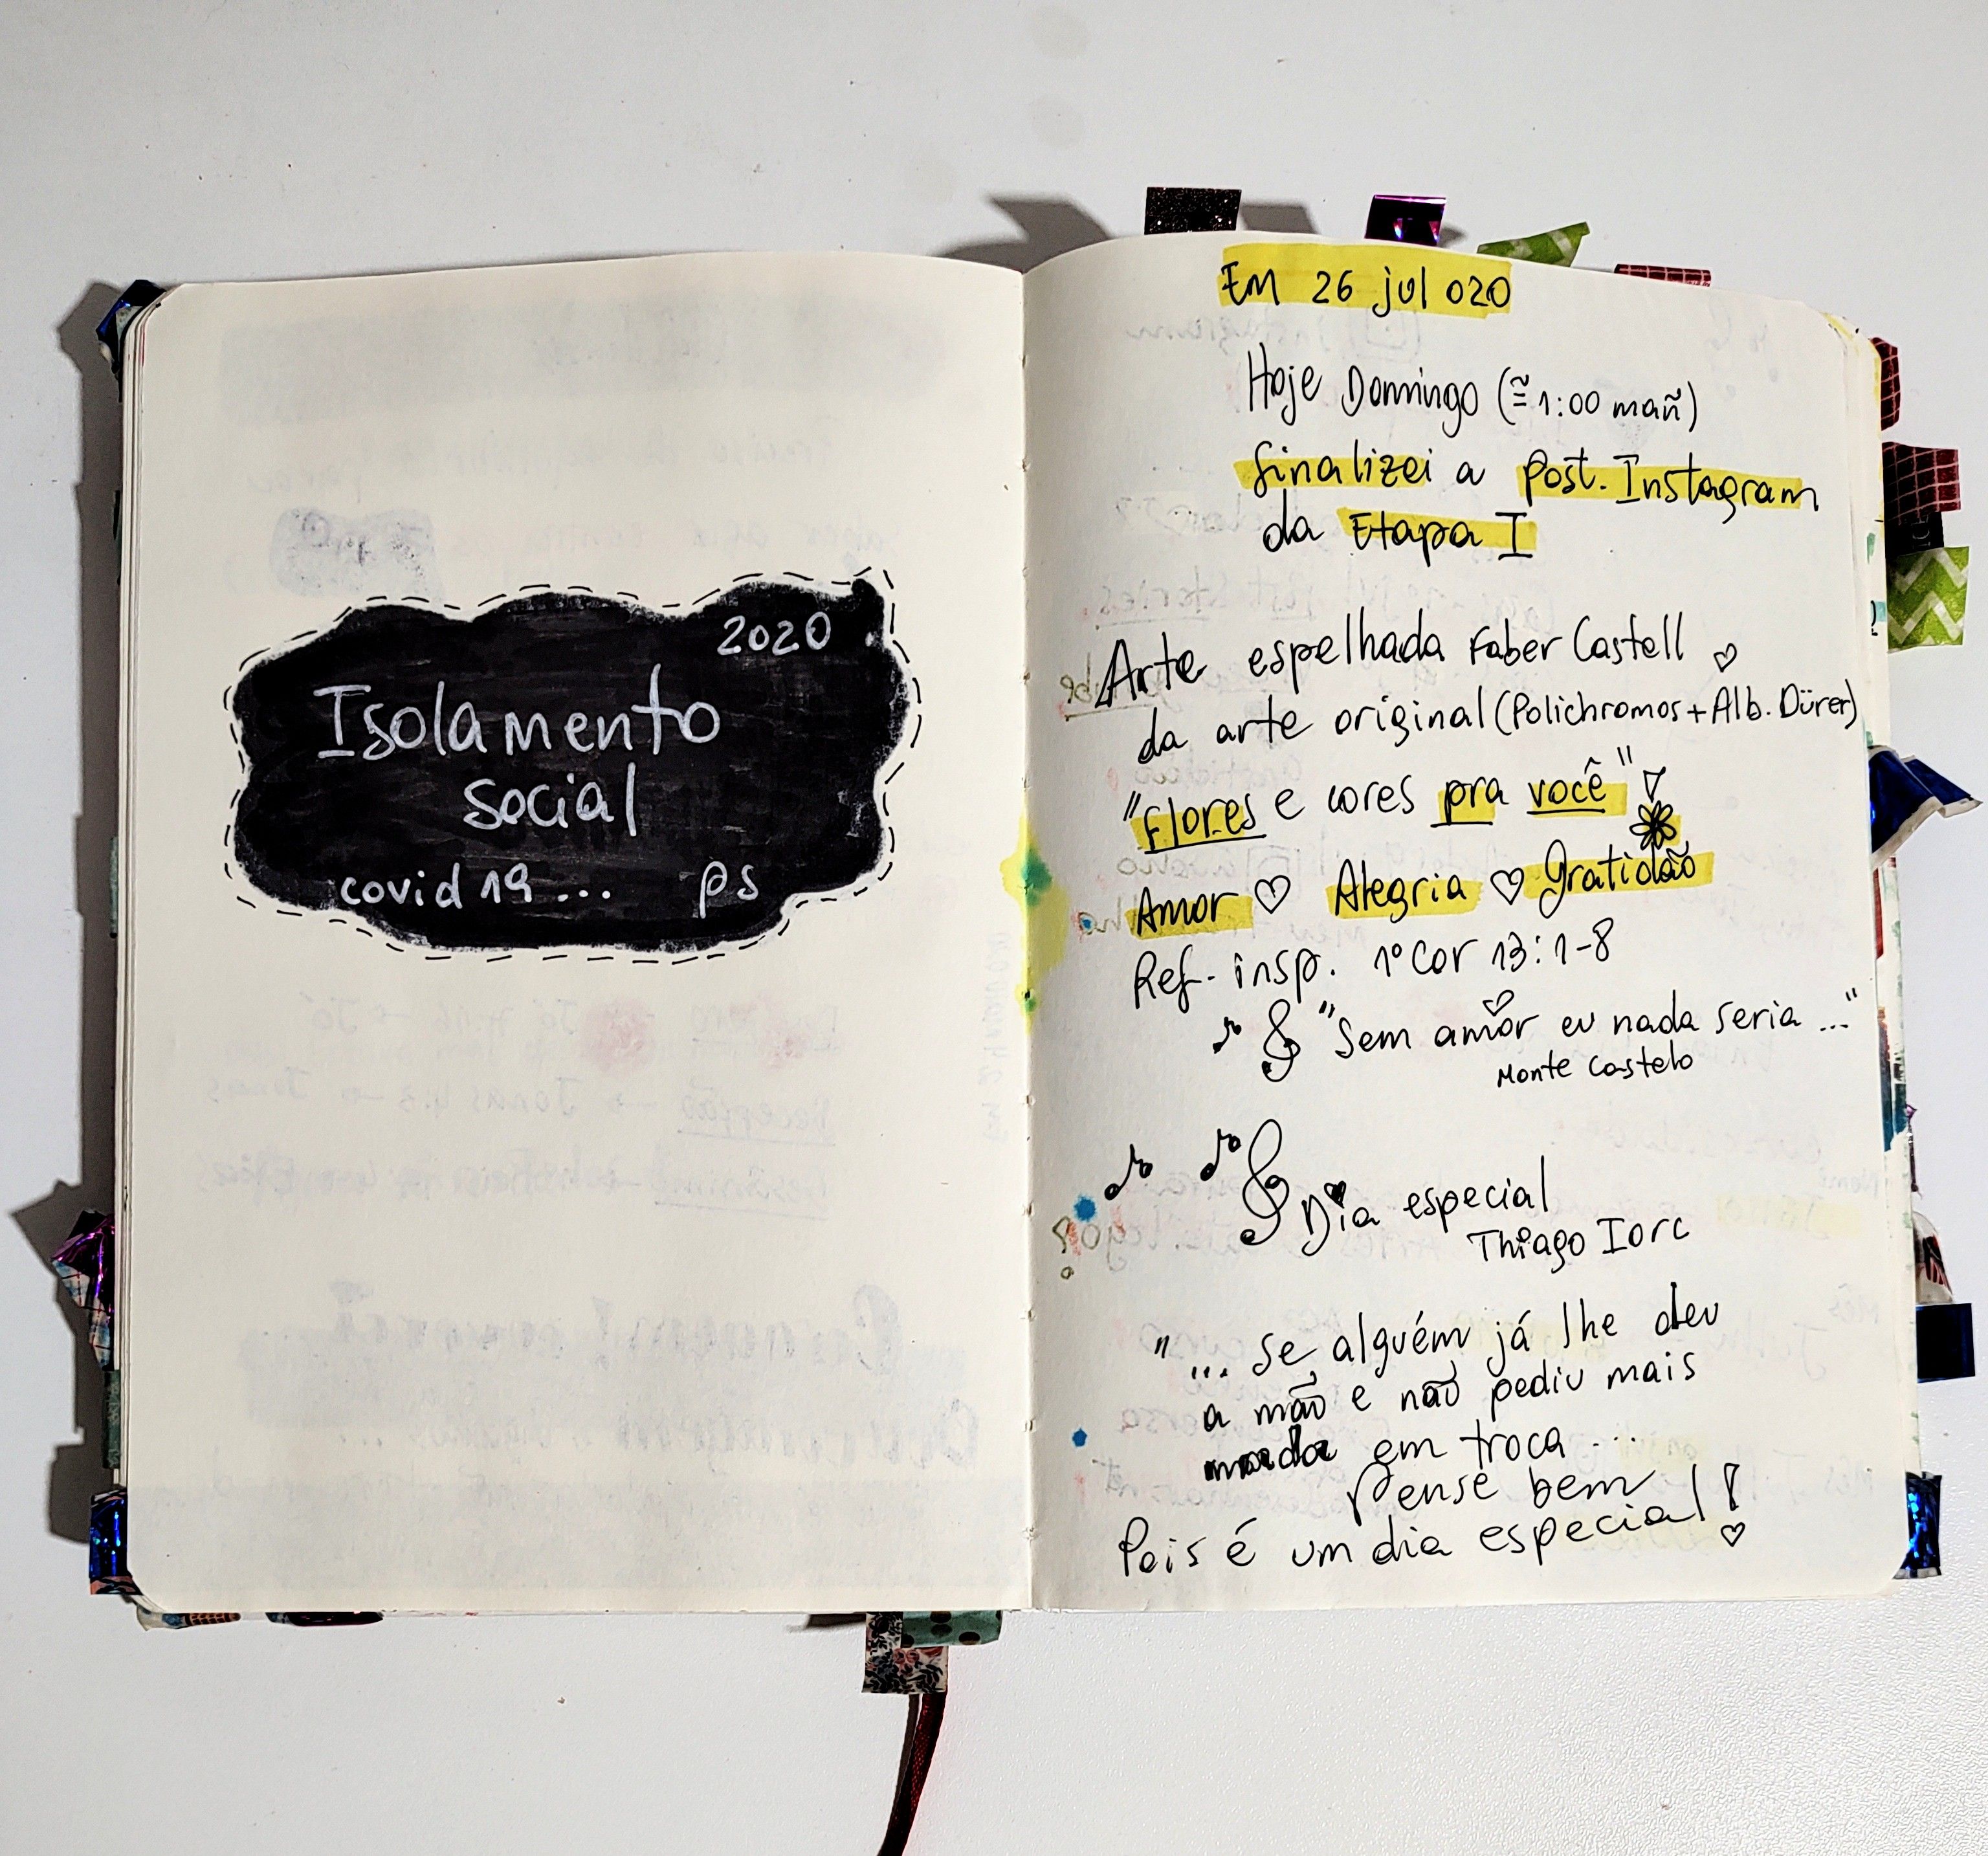 2020
Isolamento
social
covid 19... ps
Em 26 jul 020
Hoje Domingo (≅ 1:00 mañ)
finalizei a post. Instagram
da Etapa I
Arte espelhada Faber Castell ♡
da arte original (Polichromos + Alb. Dürer)
"Flores e cores pra você"
Amor ♡ Alegria ♡ Gratidão
Ref. insp. 1º Cor 13:1-8
"Sem amor eu nada seria ..."
Monte Castelo
Dia especial
Thiago Iorc
"... Se alguém já lhe deu
a mão e não pediu mais
nada em troca ...
Pense bem
Pois é um dia especial!